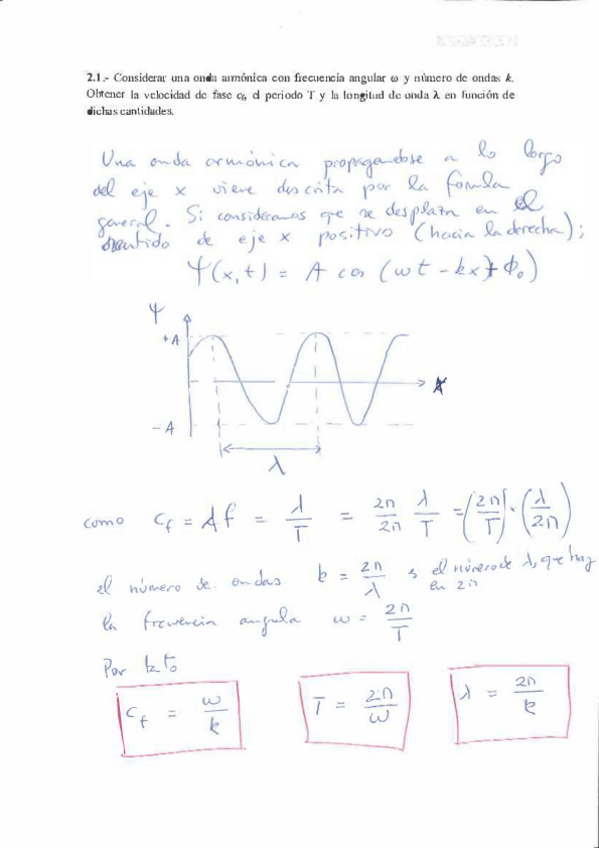 2.1.- Considerar una onda armónica con frecuencia angular ω y número de ondas k.
Obtener la velocidad de fase cf, el periodo T y la longitud de onda λ en función de
dichas cantidades.
Una onda armónica propagandose a lo largo
del eje x viene descrita por la fórmula
general. Si consideramos que se desplaza en el
sentido de eje x positivo (hacia la derecha);
Ψ(x,t) = A cos (ωt - kx + ϕ₀)
Ψ
+A
x
-A
λ
como c_f = λf = λ/T = 2π/2π λ/T = (2π/T) · (λ/2π)
el número de ondas k = 2π/λ es el número de λ, que hay
en 2π
la frecuencia angular ω = 2π/T
Por tanto
c_f = ω/k T = 2π/ω λ = 2π/k